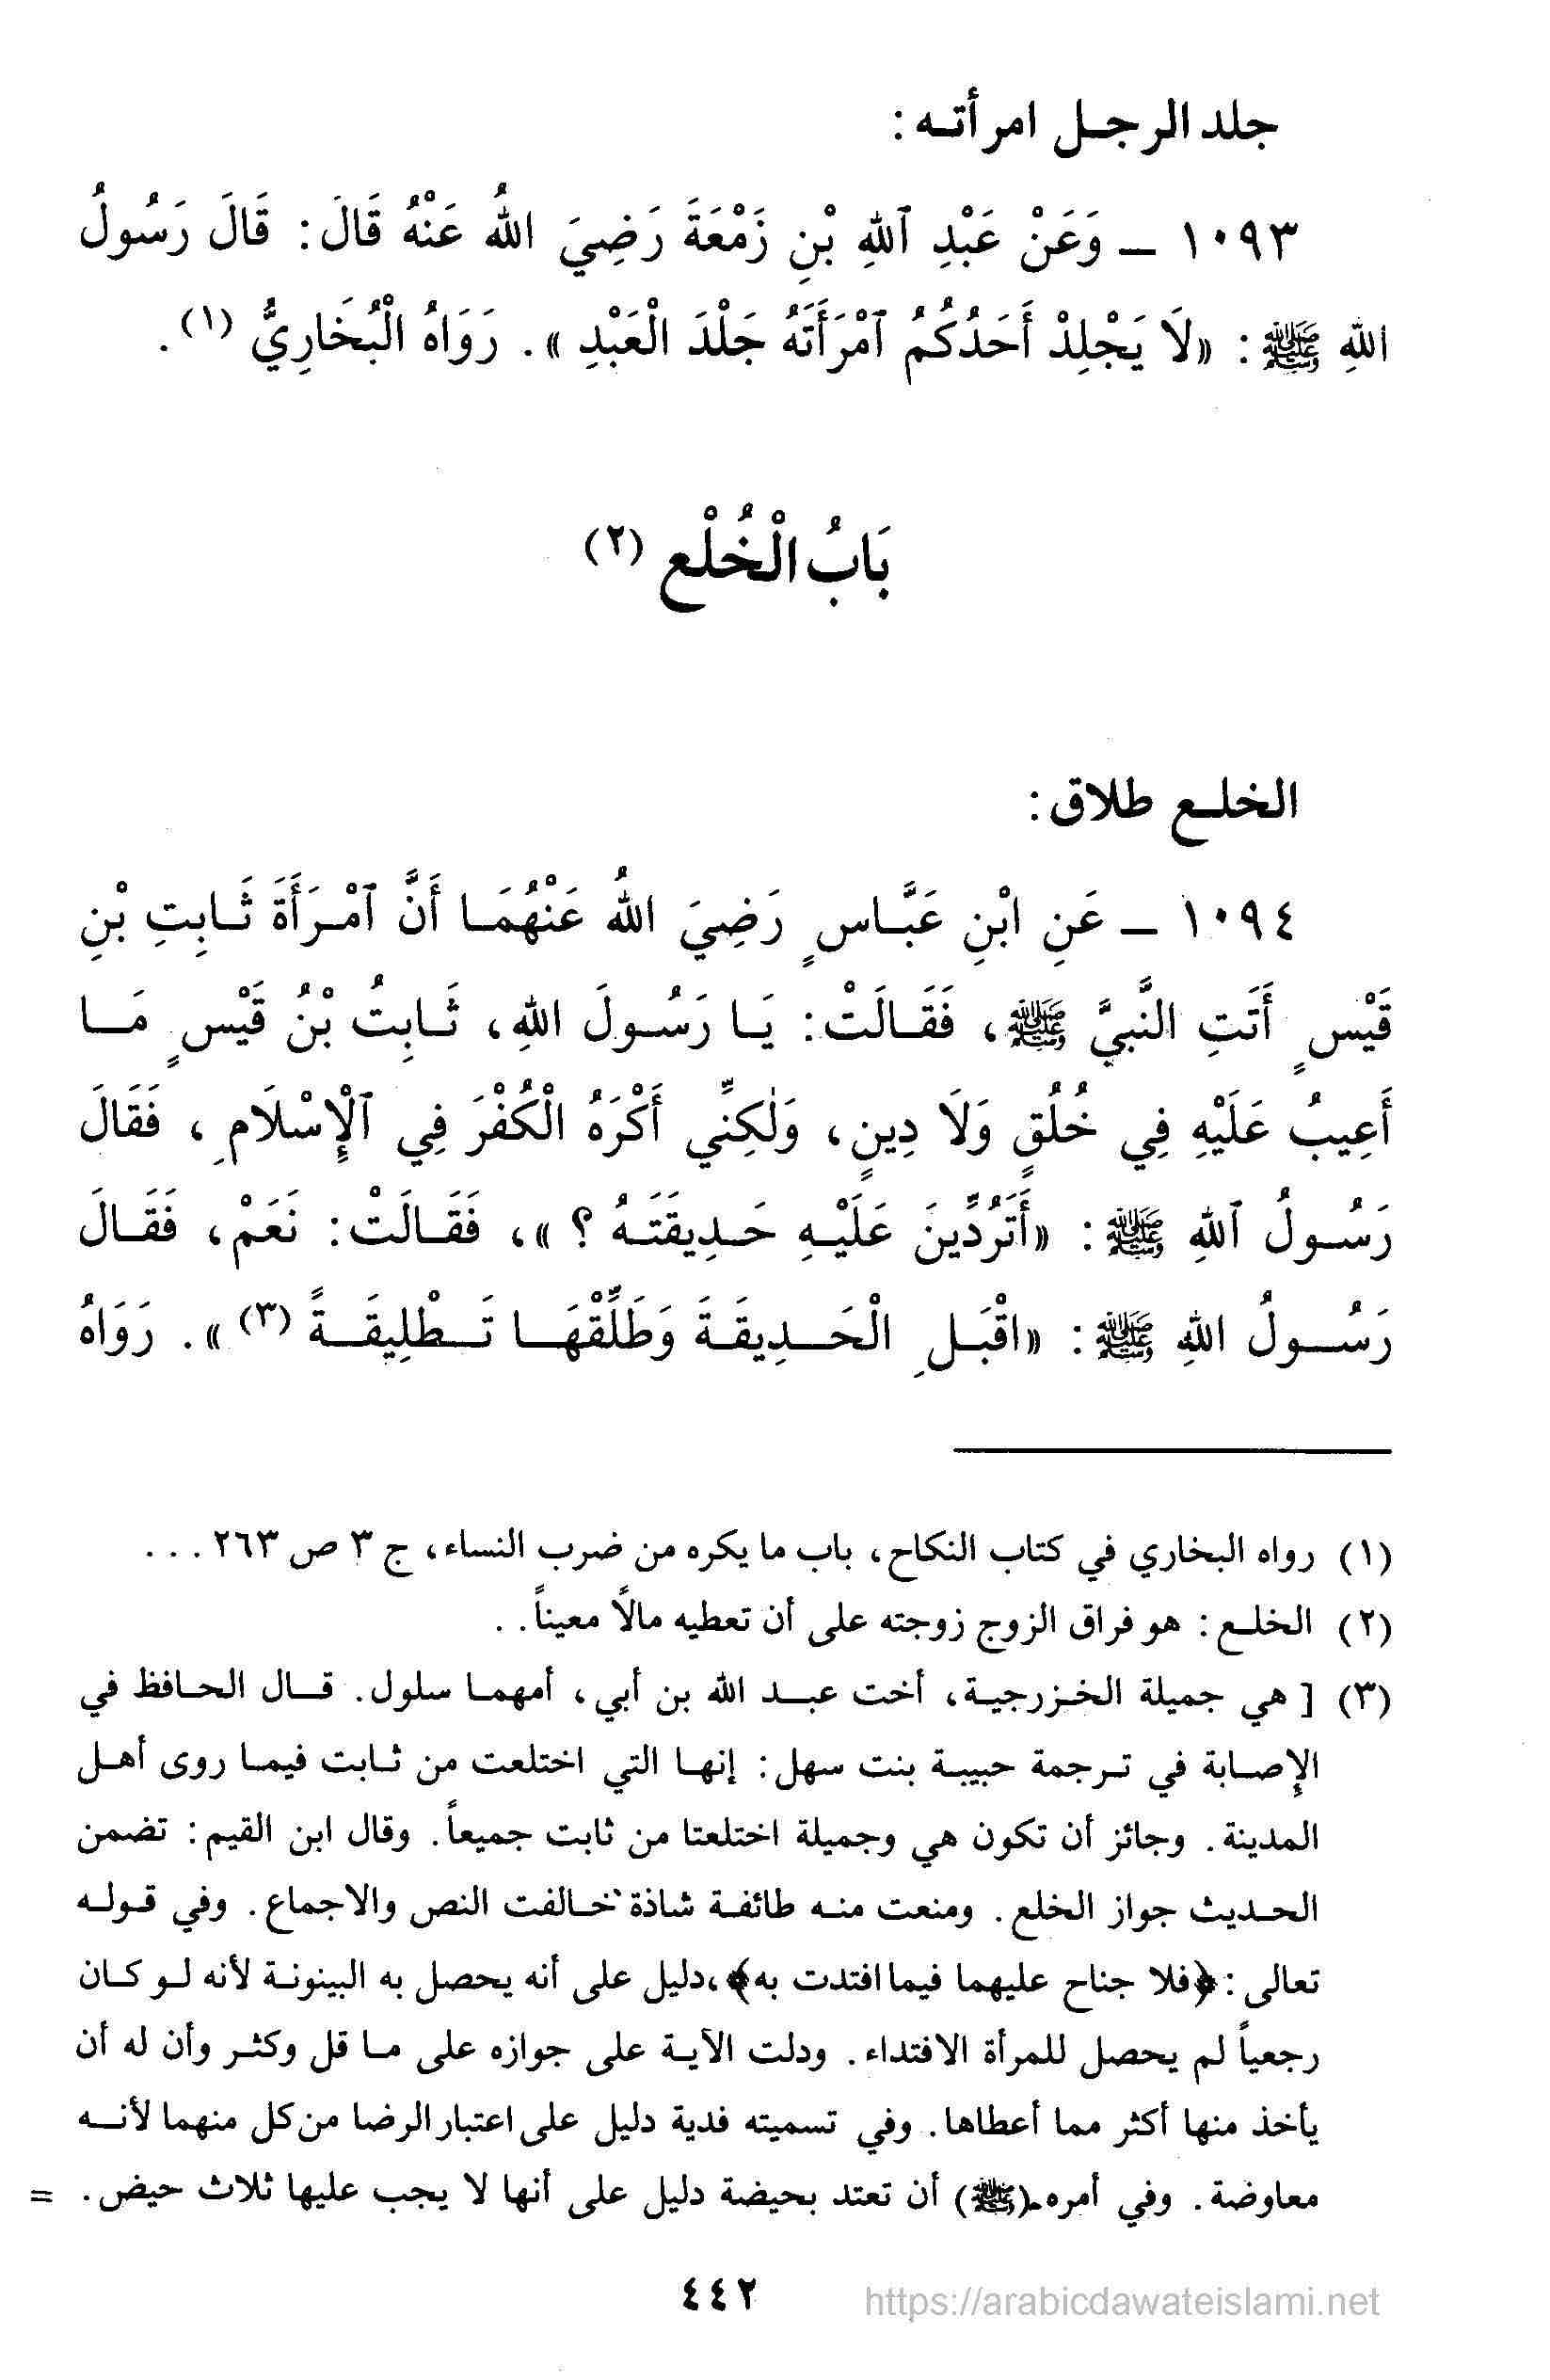 جلد الرجل امرأته:
١٠٩٣ — وَعَنْ عَبْدِ ٱللهِ بْنِ زَمْعَةَ رَضِيَ اللهُ عَنْهُ قَالَ: قَالَ رَسُولُ
اللهِ ﷺ: «لَا يَجْلِدْ أَحَدُكُمُ ٱمْرَأَتَهُ جَلْدَ الْعَبْدِ». رَوَاهُ الْبُخَارِيُّ (١).
بَابُ الْخُلْعِ (٢)
الخلع طلاق:
١٠٩٤ — عَنِ ابْنِ عَبَّاسٍ رَضِيَ اللهُ عَنْهُمَا أَنَّ ٱمْرَأَةَ ثَابِتِ بْنِ
قَيْسٍ أَتَتِ النَّبِيَّ ﷺ، فَقَالَتْ: يَا رَسُولَ اللهِ، ثَابِتُ بْنُ قَيْسٍ مَا
أَعِيبُ عَلَيْهِ فِي خُلُقٍ وَلَا دِينٍ، وَلٰكِنِّي أَكْرَهُ الْكُفْرَ فِي ٱلْإِسْلَامِ، فَقَالَ
رَسُولُ ٱللهِ ﷺ: «أَتَرُدِّينَ عَلَيْهِ حَدِيقَتَهُ ؟»، فَقَالَتْ: نَعَمْ، فَقَالَ
رَسُولُ اللهِ ﷺ: «اقْبَلِ الْحَدِيقَةَ وَطَلِّقْهَا تَطْلِيقَةً (٣)». رَوَاهُ
(١) رواه البخاري في كتاب النكاح، باب ما يكره من ضرب النساء، ج ٣ ص ٢٦٣ . . .
(٢) الخلع: هو فراق الزوج زوجته على أن تعطيه مالاً معيناً. .
(٣) [ هي جميلة الخزرجية، أخت عبد الله بن أبي، أمهما سلول. قال الحافظ في
الإصابة في ترجمة حبيبة بنت سهل: إنها التي اختلعت من ثابت فيما روى أهل
المدينة. وجائز أن تكون هي وجميلة اختلعتا من ثابت جميعاً. وقال ابن القيم: تضمن
الحديث جواز الخلع. ومنعت منه طائفة شاذة خالفت النص والاجماع. وفي قوله
تعالى: ﴿فلا جناح عليهما فيما افتدت به﴾، دليل على أنه يحصل به البينونة لأنه لو كان
رجعياً لم يحصل للمرأة الافتداء. ودلت الآية على جوازه على ما قل وكثر وأن له أن
يأخذ منها أكثر مما أعطاها. وفي تسميته فدية دليل على اعتبار الرضا من كل منهما لأنه
معاوضة. وفي أمره (ﷺ) أن تعتد بحيضة دليل على أنها لا يجب عليها ثلاث حيض. =
٤٤٢
https://arabicdawateislami.net